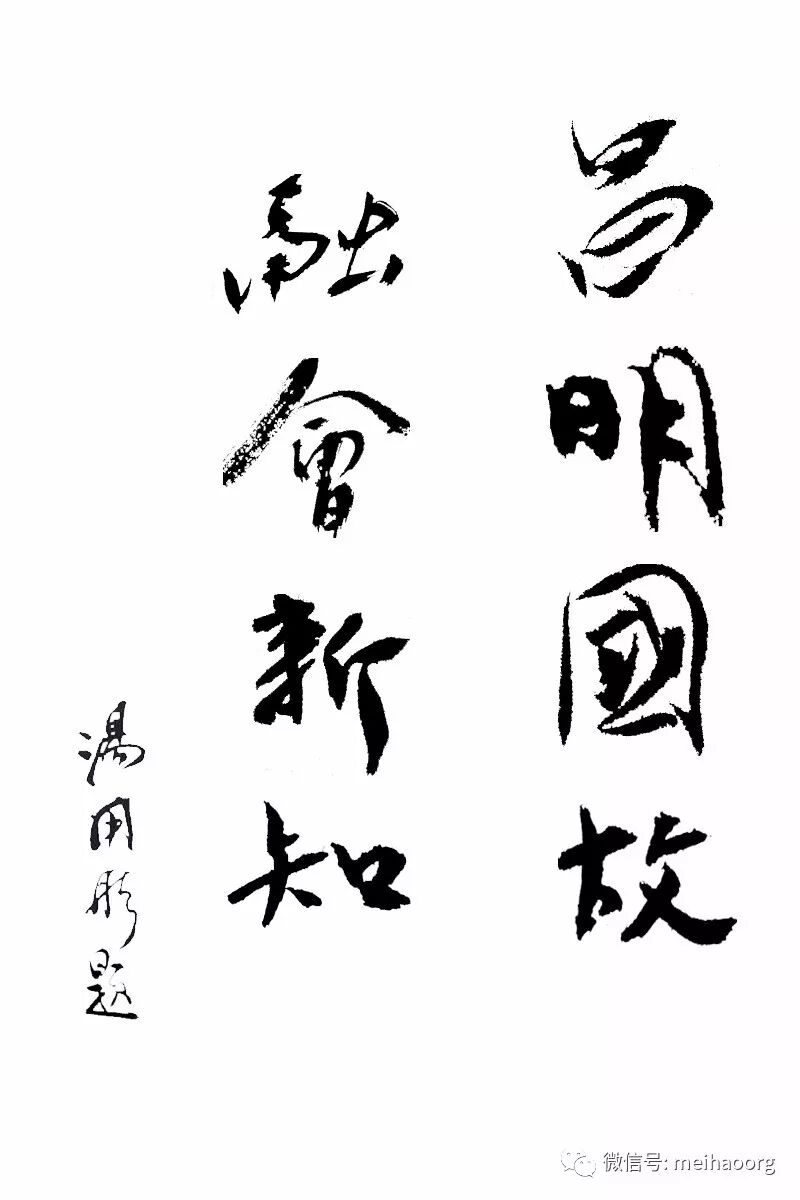 昌明國故
融會新知
湯用彤題
微信号: meihaoorg